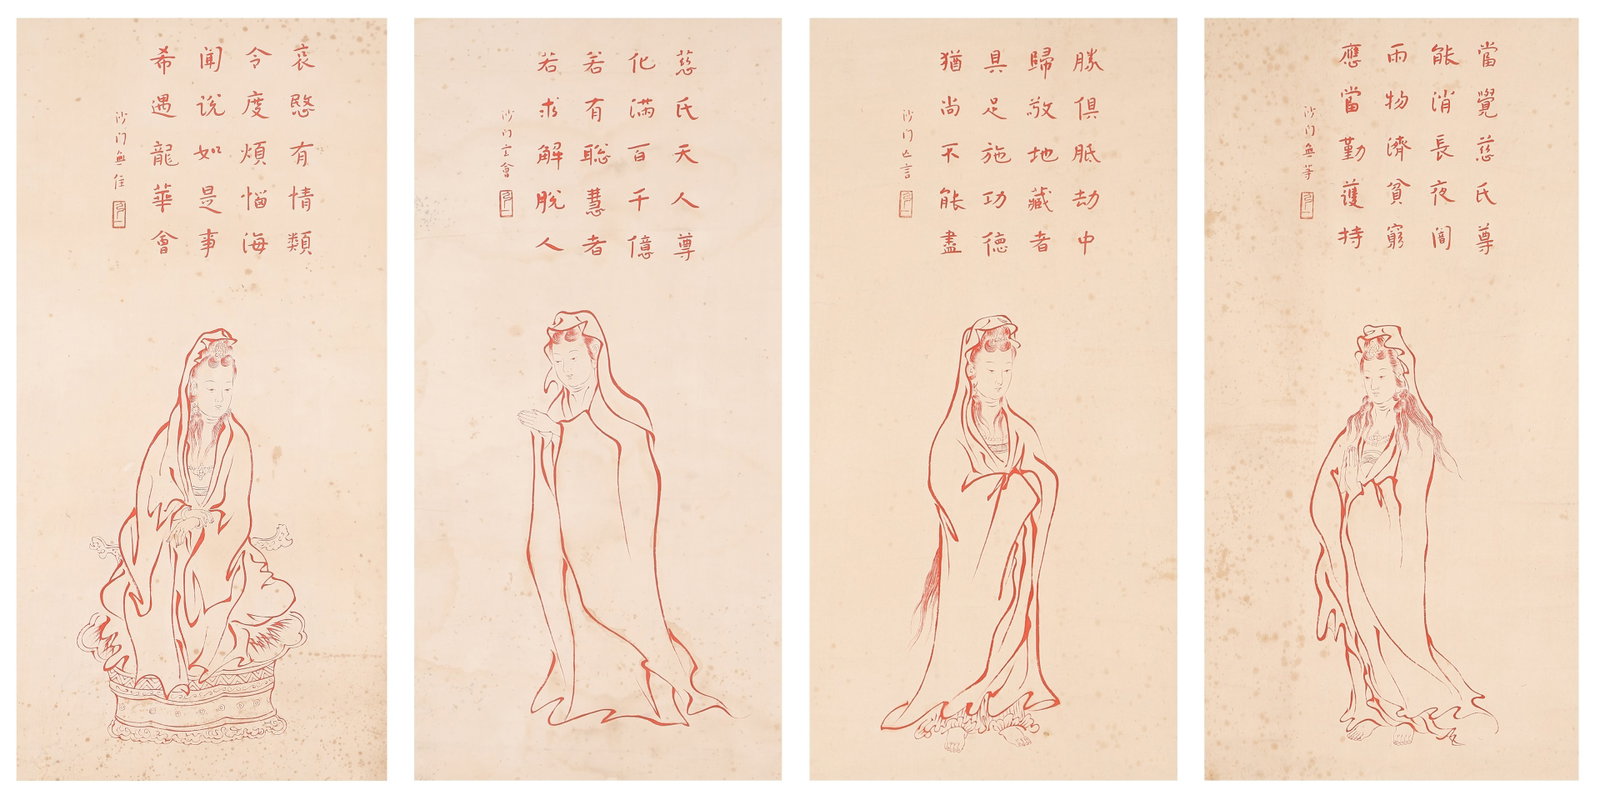 當覺慈氏尊
能消長夜闇
雨物濟貧窮
應當勤護持
沙门無等
勝俱胝劫中
歸敬地藏者
具足施功德
猶尚不能盡
沙门亡言
慈氏天人尊
化滿百千億
若有聰慧者
若求解脱人
沙门玄會
哀愍有情類
令度煩惱海
聞说如是事
希遇龍華會
沙门無住